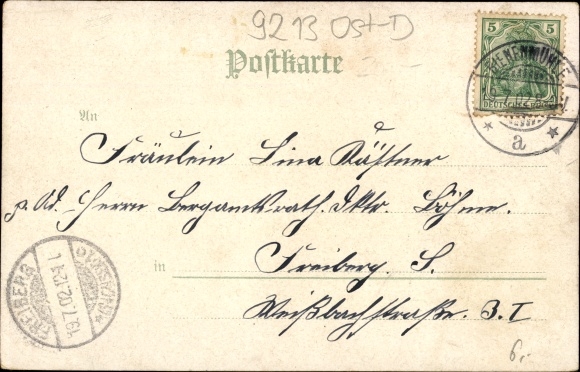 9213 Ost-D
Postkarte
5
DEUTSCHES REICH
a
An
Fräulein Lina Kästner
p. Ad. Herrn Bergamtsrath. Dktr. Böhme.
in Freiberg. S.
Weißbachstraße. 3. I
FREIBERG
19.7.02. 12-1
(SACHSEN)
6,-